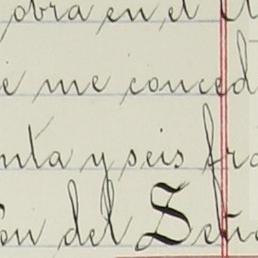 obra en el
e me conced
nta y seis fra
on del Seño